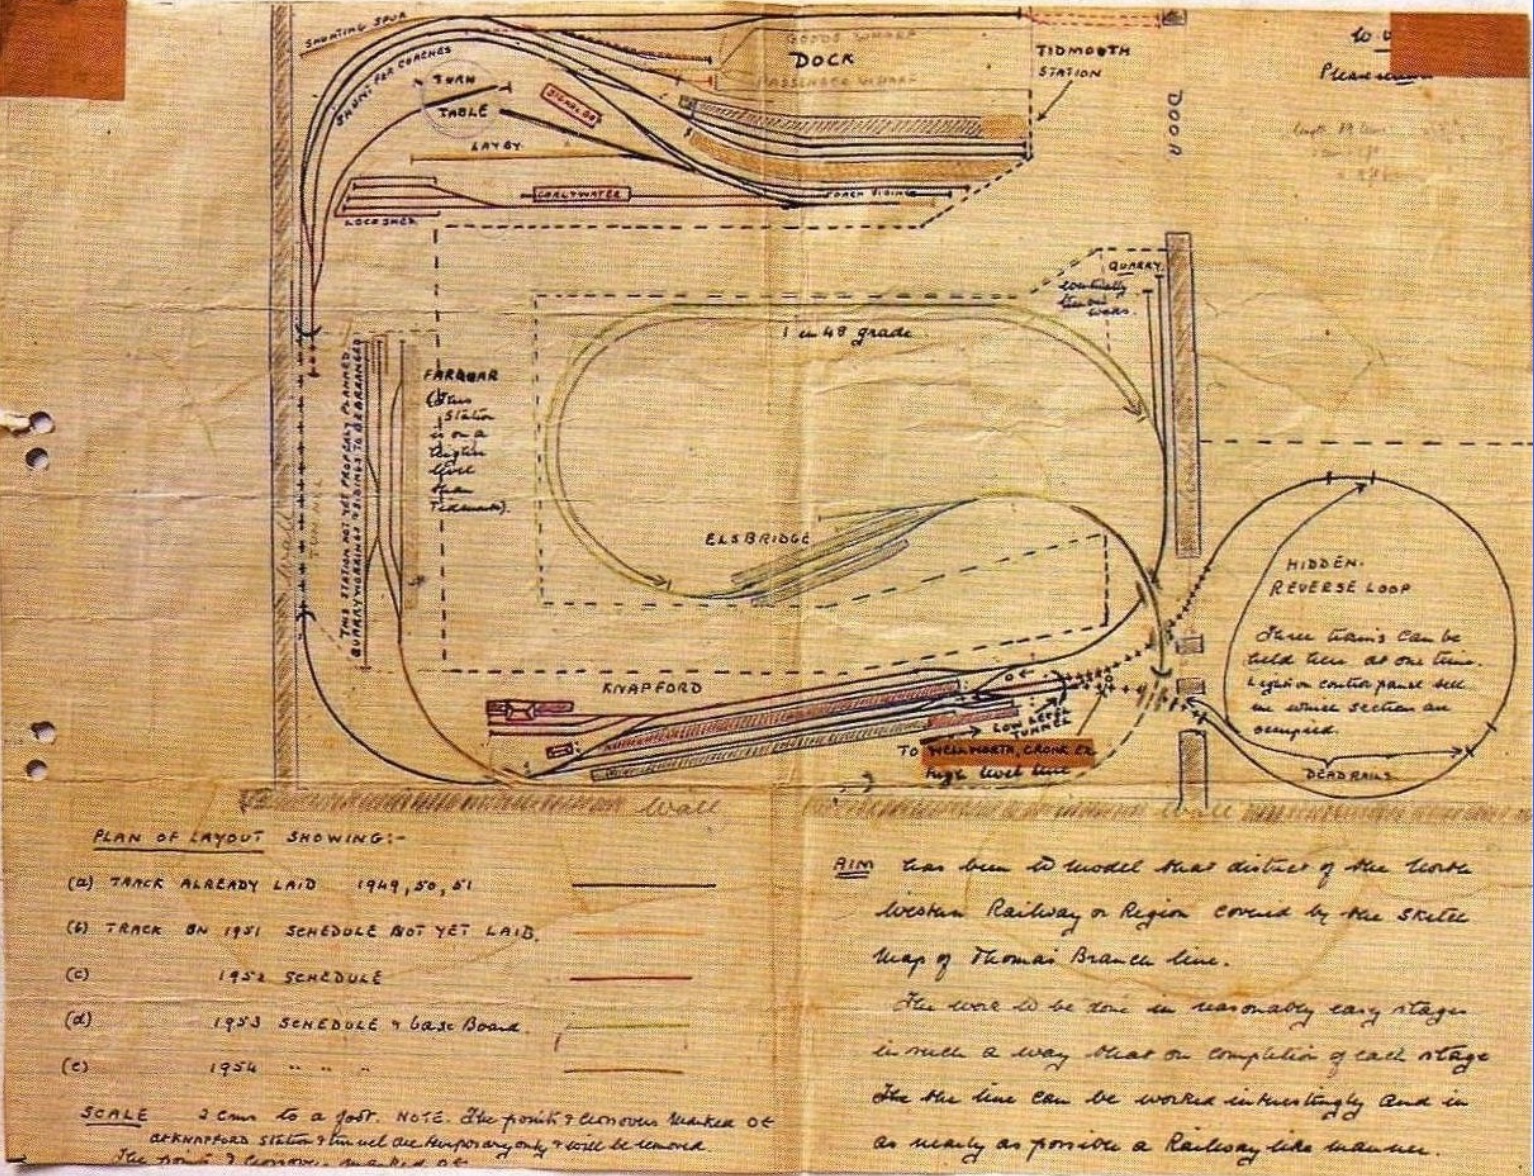 SHUNTING SPUR
SHUNT FOR COACHES
TURN
TABLE
SIGNAL BOX
LAY BY
COAL & WATER
LOCO SHED
GOODS WHARF
DOCK
PASSENGER WHARF
COACH SIDING
TIDMOUTH
STATION
DOOR
Please return
QUARRY
eventually
tram
works.
1 in 48 grade
FARQUAR
(This
Station
is on a
higher
level
than
Tidmouth).
THIS STATION NOT YET PROPERLY PLANNED
QUARRY WORKINGS & SIDINGS TO BE ARRANGED
Wall
TUNNEL
ELSBRIDGE
KNAPFORD
LOW LEVEL
TUNNEL
TO WELLWORTH, CRONK Etc
high level line
Wall
HIDDEN.
REVERSE LOOP
Three trains can be
held here at one time.
Lights on control panel tell
in which section are
occupied.
DEAD RAILS
Wall
Wall
PLAN OF LAYOUT SHOWING:-
(a) TRACK ALREADY LAID 1949, 50, 51
(b) TRACK ON 1951 SCHEDULE NOT YET LAID.
(c) 1952 SCHEDULE
(d) 1953 SCHEDULE & base Board.
(e) 1954 " " "
SCALE 2 cms to a foot. NOTE. The points & crossovers marked OE
at KNAPFORD station & tunnel are temporary only & will be removed.
The points & crossovers marked OE
AIM has been to model that district of the North
Western Railway or Region covered by the sketch
Map of Thomas' Branch line.
The work to be done in reasonably easy stages
in such a way that on completion of each stage
The the line can be worked interestingly and in
as nearly as possible a Railway like manner.